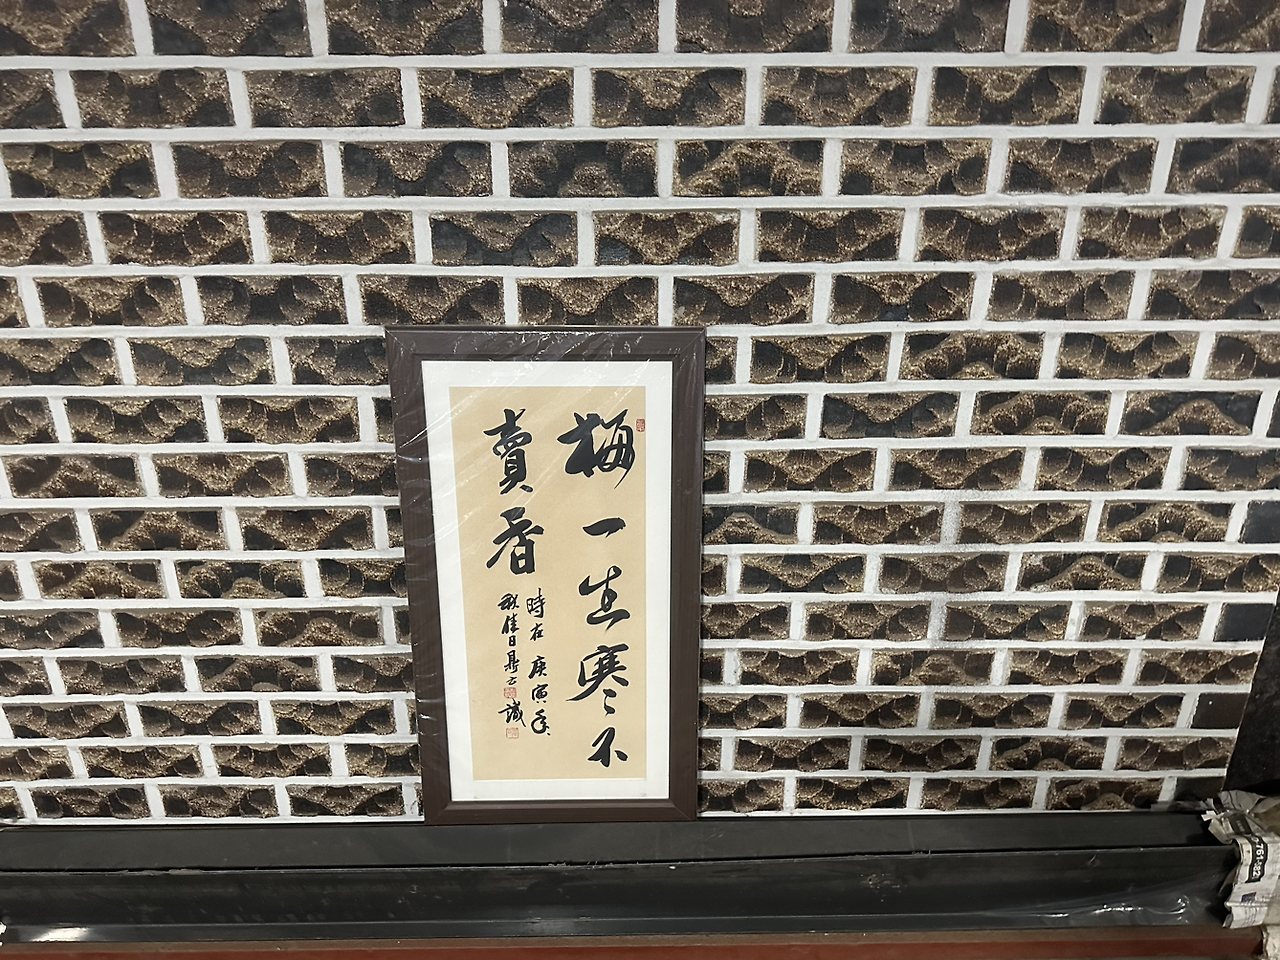 梅一生寒不
賣香
時在庚寅年
秋佳日鼎
識